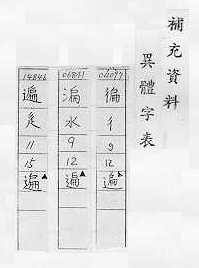 補充資料
異體字表
04097
徧
彳
9
12
遍▲
水
9
12
遍▲
14846
辵
11
15
遍▲